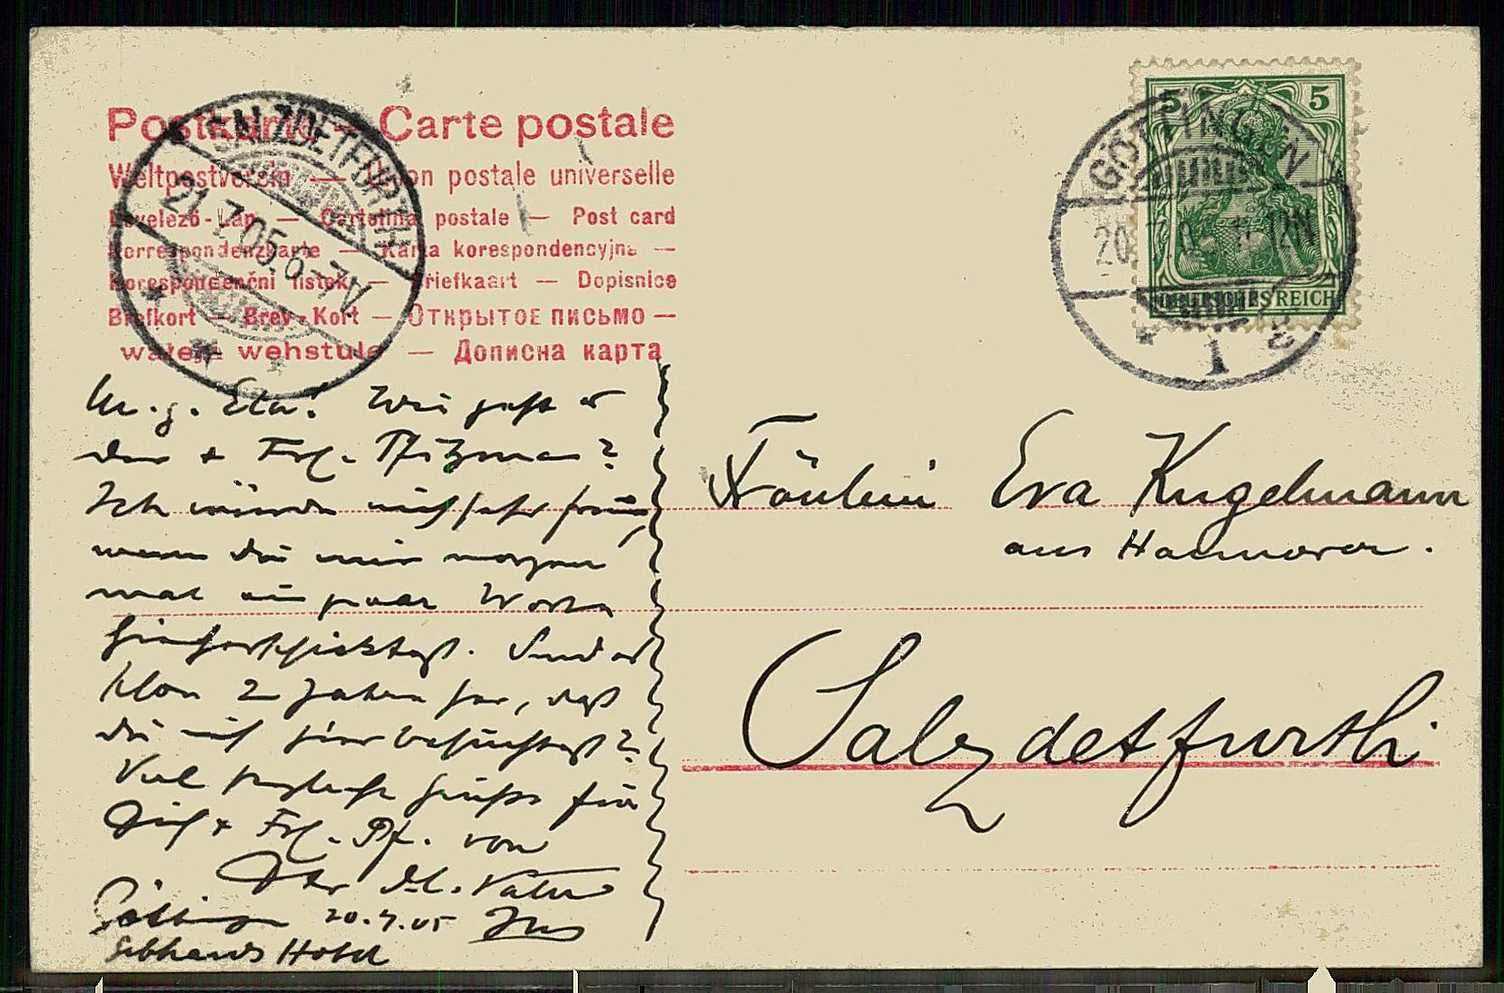 Postkarte — Carte postale
Weltpostverein — Union postale universelle
Levelező-Lap — Cartolina postale — Post card
Correspondenzkarte — Karta korespondencyjna —
Korespondenční lístek — Briefkaart — Dopisnice
Brefkort — Brev-Kort — Открытое письмо —
Дописна карта
SALZDETFURTH
21.7.05.6-7V.
GÖTTINGEN
5 5
DEUTSCHES REICH
M. g. Eva! Wie geht es
dir + Frl.
Ich würde mich sehr freuen,
wenn du mir morgen
mal ein paar Worte
hierherschicktest. Sind es
schon 2 Jahre her, daß
du mich hier besuchtest?
Viel herzliche Grüße für
Dich + Frl. Pf. von
Vater
Göttingen 20.7.05
Gebhards Hotel
Fräulein Eva Kugelmann
aus Hannover.
Salzdetfurth